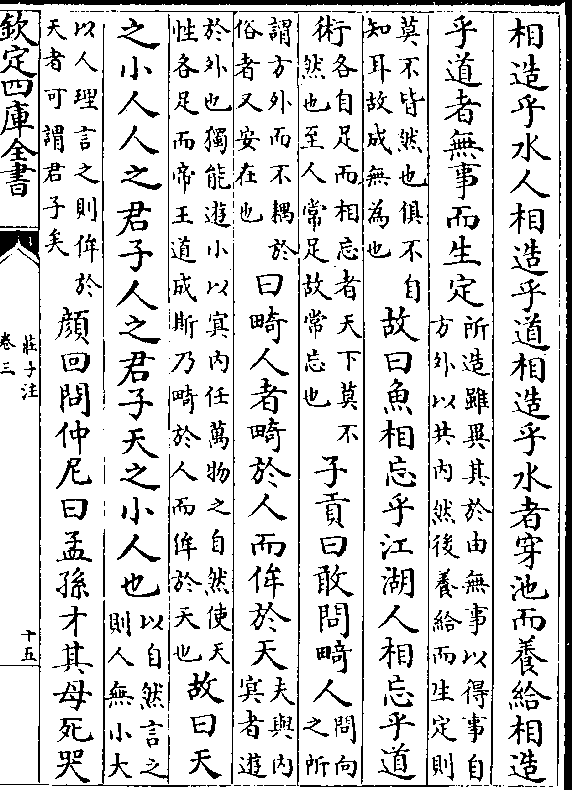 相造乎水人相造乎道相造乎水者穿池而養給相造
乎道者無事而生定
所造雖異其於由無事以得事自
方外以共内然後養給而生定則
莫不皆然也俱不自
知耳故成無為也
故曰魚相忘乎江湖人相忘乎道
術
各自足而相忘者天下莫不
然也至人常足故常忘也
子貢曰敢問畸人
問向
之所
謂方外而不耦於
俗者又安在也
曰畸人者畸於人而侔於天
夫與内
㝠者遊
於外也獨能遊小以㝠内任萬物之自然使天
性各足而帝王道成斯乃畸於人而侔於天也
故曰天
之小人人之君子人之君子天之小人也
以自然言之
則人無小大
以人理言之則侔於
天者可謂君子矣
顔回問仲尼曰孟孫才其母死哭
欽定四庫全書
莊子注
卷三
十五